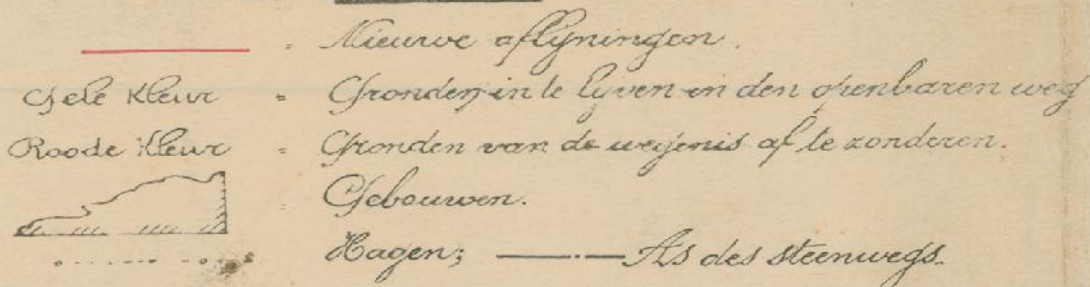 = Nieuwe aflyningen.
Gele Kleur = Gronden in te lyven in den openbaren weg
Roode Kleur = Gronden van de wegenis af te zonderen.
= Gebouwen.
Hagen; As des steenwegs.